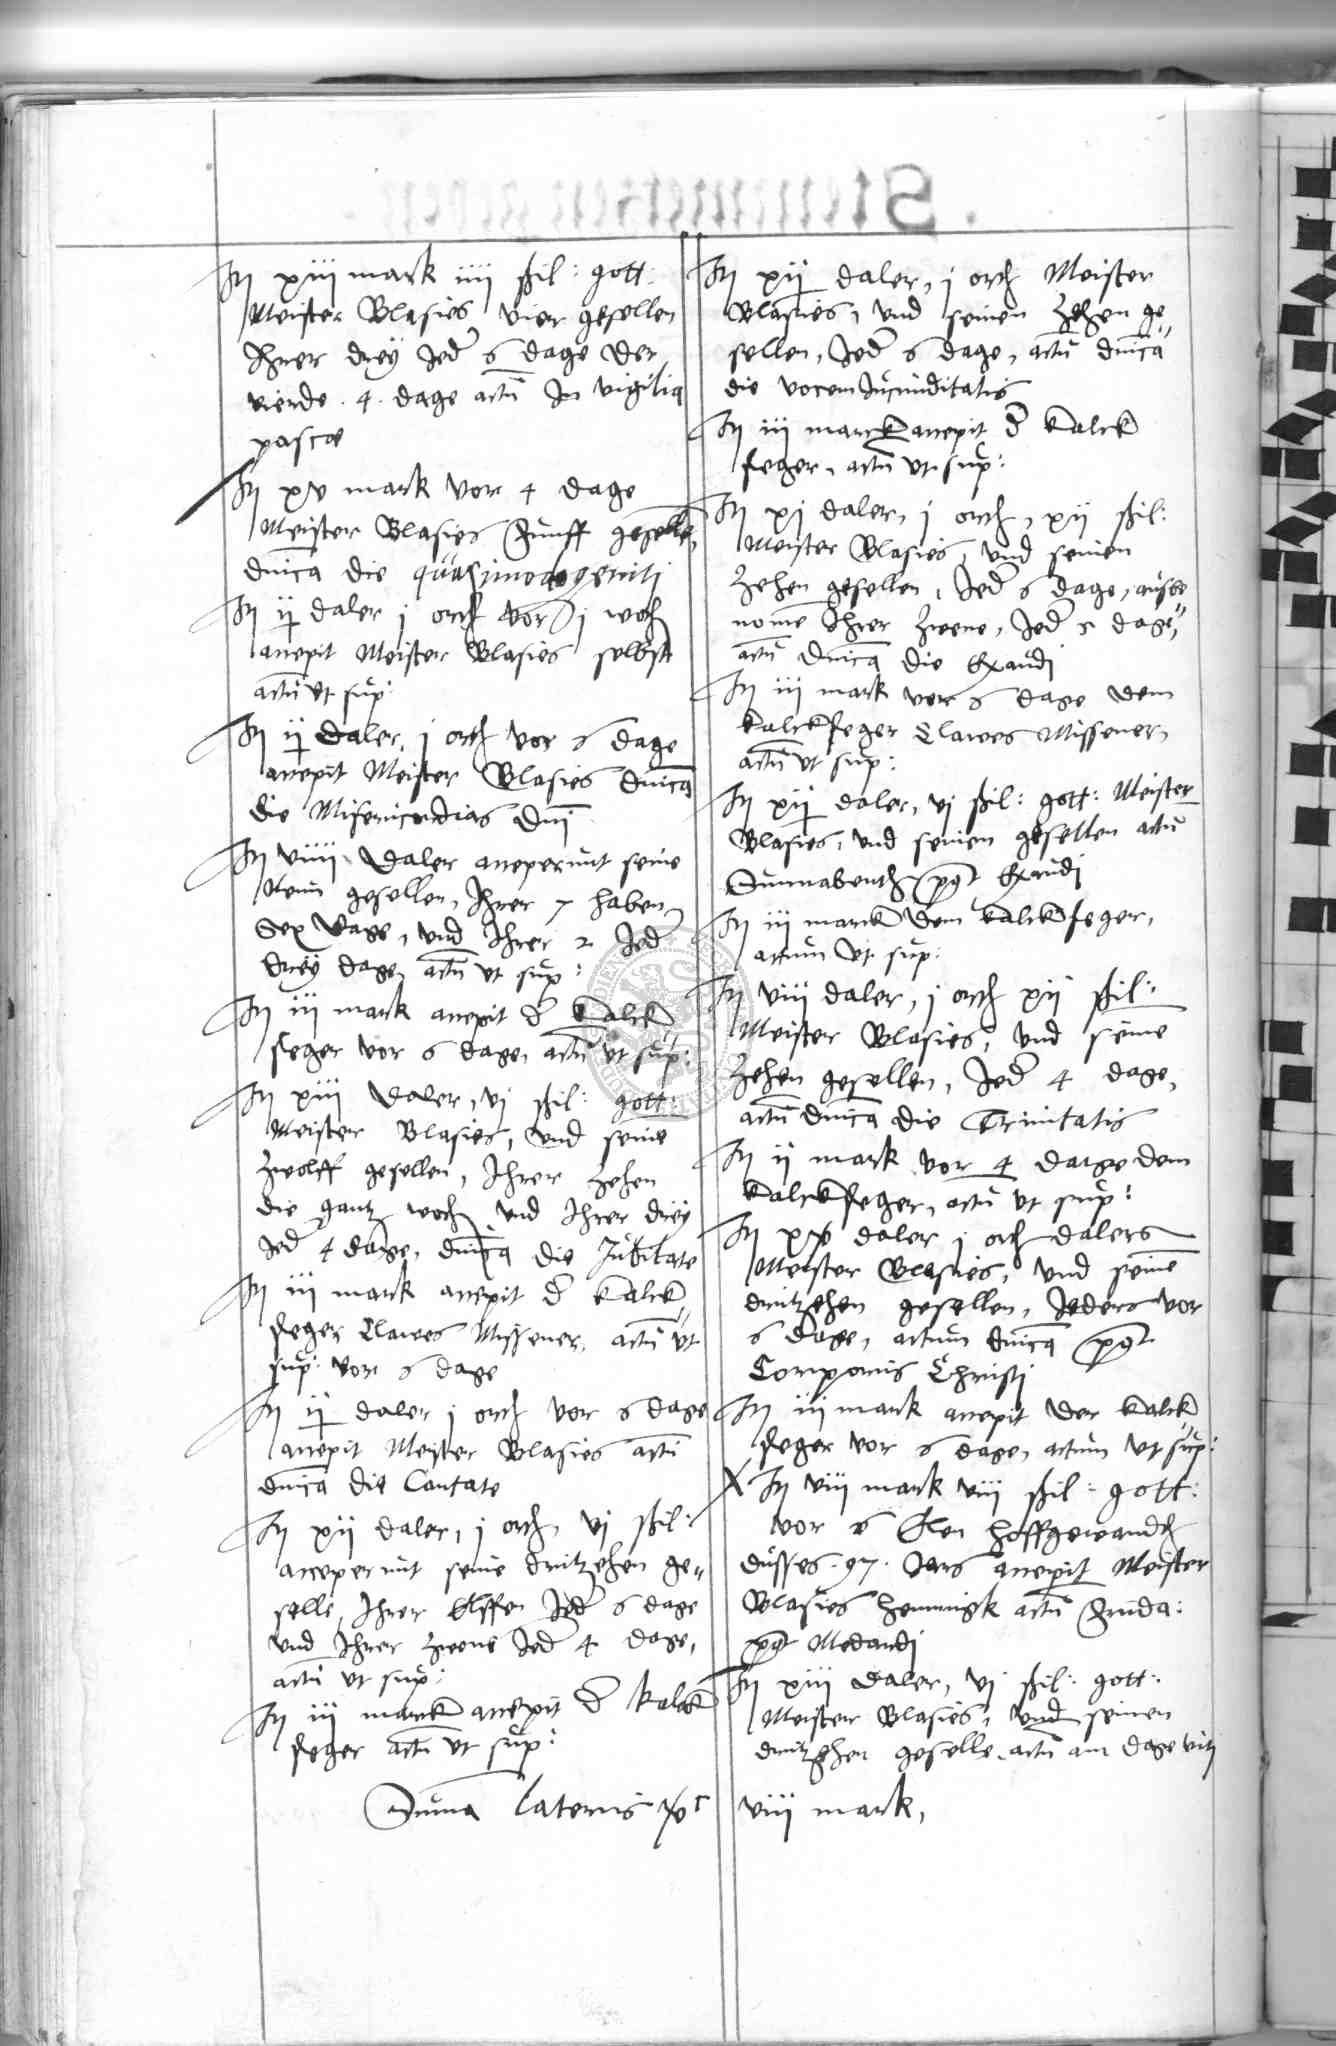 It xiii mark iiii ßil: gott:
Meister Blasies vier gesellen
Ihrer drey Jed 6 dage der
vierde . 4 . dage actu In vigilia
pasce
It xv mark vor 4 dage
Meister Blasies Funff geselle
dnica die quasimodogeniti
It ij daler j orth vor j woch
accepit Meister Blasies selbst
actu ut sup:
It ij daler j orth vor 6 dage
accepit Meister Blasies dnica
die Misericordias dni
It viiii daler acceperunt seine
Neun gesellen, Ihrer 7 haben
Sex dage, und Ihrer 2 Jed
drey dage, actu ut sup:
It iii mark accepit d kalck
feger vor 6 dage, actu ut sup:
It xiii daler, vj ßil: gott:
Meister Blasies, und seine
zwolff gesellen, Ihrer zehen
die gantz woch und Ihrer drey
Jed 4 dage, dnica die Jubilate
It iii mark accepit d kalck"
feger Clawes Missener, actu ut
sup: vor 6 dage
It ij daler j orth vor 6 dage
accepit Meister Blasies actu
dnica die Cantate
It xij daler, j orth, vj ßil:
acceperunt seine dritzehen ge"
selle, Ihrer Elffen Jed 6 dage
und Ihrer zweene Jed 4 dage,
actu ut sup:
It iii marck accepit d kalck
feger actu ut sup:
It xij daler, j orth Meister
Blasies, und seinen zehen ge"
sellen, Jed 6 dage, actu dnica
die vocem Jucunditatis
It iii marck accepit d kalck
feger, actu ut sup:
It xj daler, j orth, xij ßil:
Meister Blasies, und seinen
zehen gesellen, Jed 6 dage, ausbe
nome Ihrer zweene, Jed 5 dage,
actu dnica die Exaudi
It iii mark vor 6 dage dem
kalckfeger Clawes Missener,
actu ut sup:
It xij daler, vj ßil: gott: Meister
Blasies, und seinen gesellen actu
Sunnabenth post Exaudi
It iii marck dem kalckfeger,
actum ut sup:
It viii daler, j orth xij ßil:
Meister Blasies, und seine
zehen gesellen, Jed 4 dage,
actu dnica die Trinitatis
It ij mark vor 4 dage dem
kalckfeger, actu ut sup:
It daler j orth dalers
Meister Blasies, und seine
dritzehen gesellen, Jeders vor
6 dage, actum dnica post
Corporis Christi
It iii mark accepit der kalck"
feger vor 6 dage, actum ut sup:
X It viii mark viii ßil: gott:
vor Elen hoffgewandth
dusses . 97 . Jars accepit Meister
Blasies Hemmigk actu Frida:
post Medardi
It xiii daler, vj ßil: gott:
Meister Blasies, und seinen
dritzehen geselle actu am dage viti
Suma lateris viii mark,